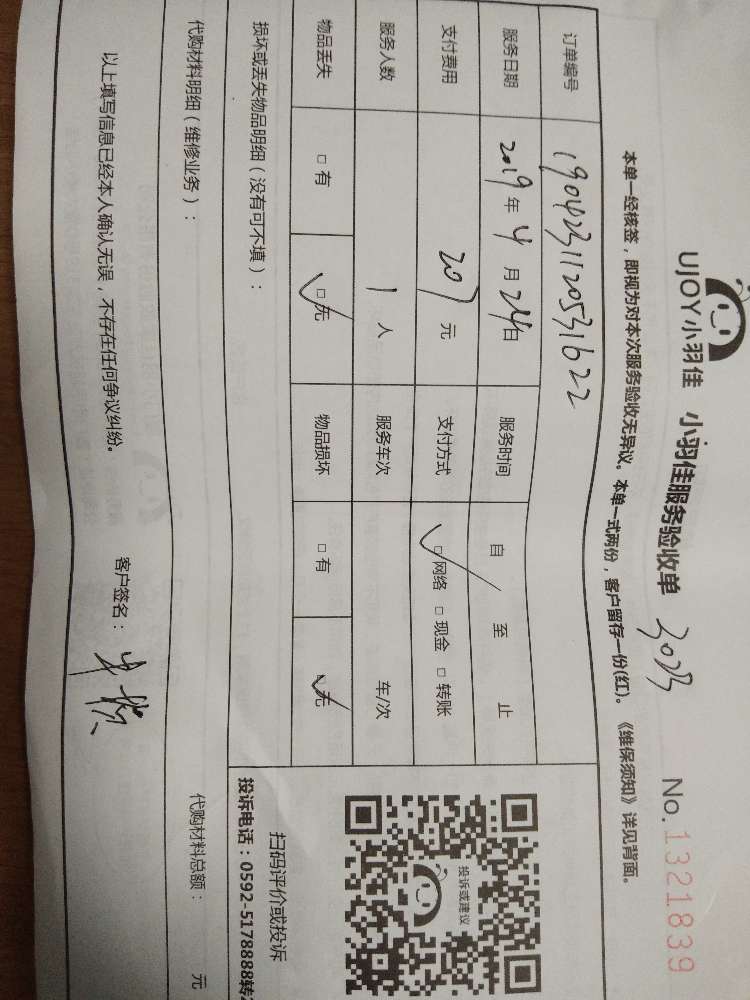 UJOY小羽佳 小羽佳服务验收单 3023 No.1321839
本单一经核签，即视为对本次服务验收无异议。本单一式两份，客户留存一份(红)。《维保须知》详见背面。
订单编号 19042311205531622
服务日期 2019年4月24日 服务时间 自 至 止
支付费用 207元 支付方式 □网络 □现金 □转账
服务人数 1人 服务车次 车/次
物品丢失 □有 □无 物品损坏 □有 □无
投诉或建议
扫码评价或投诉
投诉电话：0592-5178888转2
损坏或丢失物品明细（没有可不填）：
代购材料明细（维修业务）： 代购材料总额： 元
以上填写信息已经本人确认无误，不存在任何争议纠纷。 客户签名：